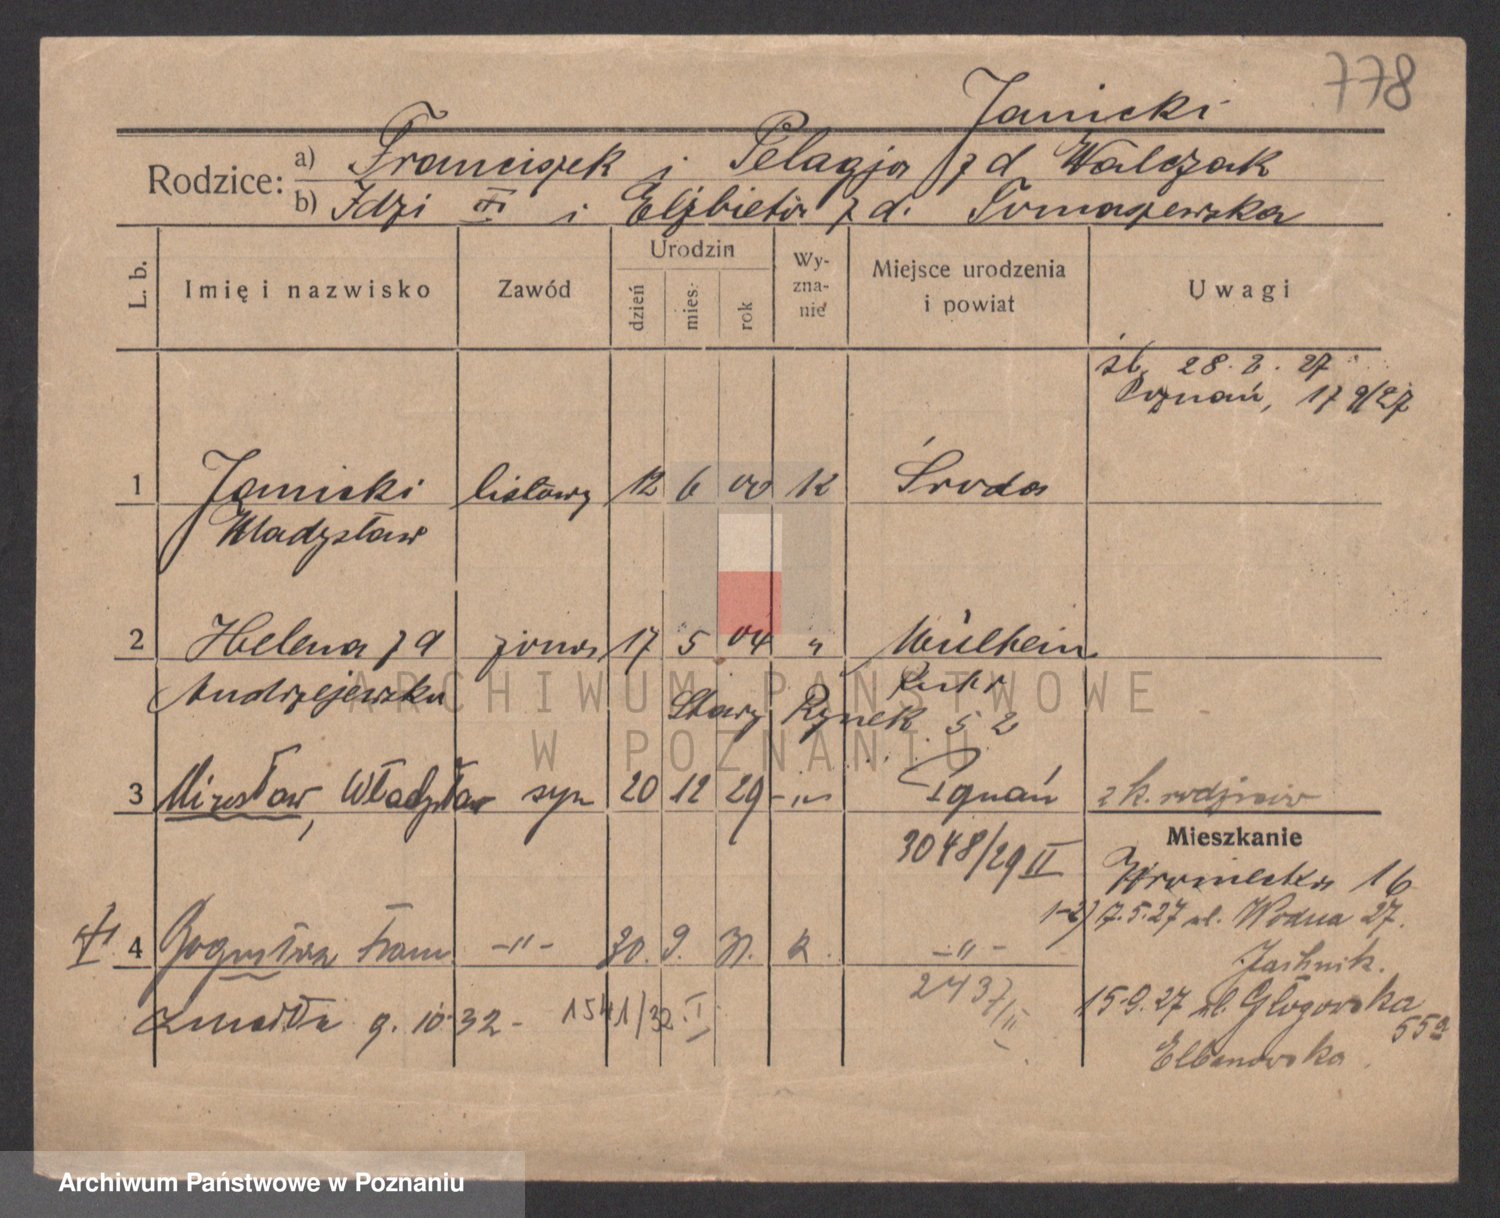 778
Janicki
Rodzice: a) Franciszek i Pelagja z d Walczak
b) Idzi i Elżbieta z d. Tomaszewska
L. b. Imię i nazwisko Zawód Urodzin dzień mies. rok Wy-zna-nie Miejsce urodzenia i powiat Uwagi
śl. 28. 2. 27
Poznań, 17 9/27
1 Janicki listowy 12 6 00 k Środa
Władysław
2 Helena z d żona 17 5 04 " Mülheim
Andrzejewska Ruhr
Stary Rynek 52
3 Mirosław, Władysław syn 20 12 29 -"- Poznań z k. rodziców
3048/29 II
Mieszkanie
Wroniecka 16
1-2) 7.5.27 ul. Wodna 27.
4 Bogusława Fran. -"- 30. 9. 31. k. -"-
Jachnik.
zmarła 9. 10. 32 - 1541/32 I 2437/II
15.9.27 ul. Głogowska
55a
Elbanowska.
ARCHIWUM PAŃSTWOWE
W POZNANIU
Archiwum Państwowe w Poznaniu